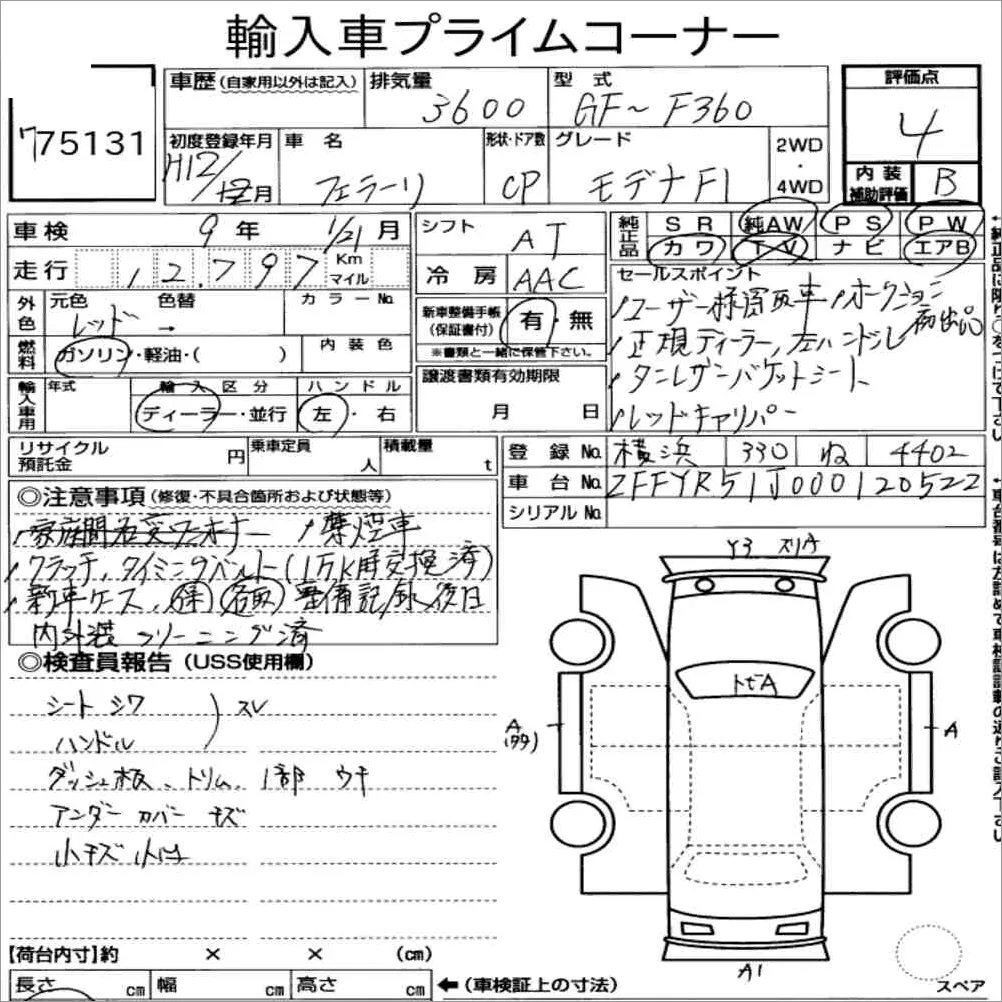 輸入車プライムコーナー
775131
車歴 (自家用以外は記入)
排気量 3600
型式 GF~F360
評価点 4
初度登録年月 H12/12月
車名 フェラーリ
形状・ドア数 CP
グレード モデナF1
2WD・4WD
内装補助評価 B
車検 9年 1/21月
シフト AT
純正品 SR 純AW PS PW
カワ TV ナビ エアB
走行 12,797 Km マイル
冷房 AAC
セールスポイント
外色 元色 レッド 色替 →
カラーNo.
新車整備手帳(保証書付) 有・無
※書類と一緒に保管下さい。
ユーザー様買取車 オークション初出品
正規ディーラー,左ハンドル
燃料 ガソリン・軽油・( )
内装色
タンレザーバケットシート
レッドキャリパー
輸入車用 年式
輸入区分 ディーラー・並行
ハンドル 左・右
譲渡書類有効期限
月 日
リサイクル預託金 円
乗車定員 人
積載量 t
登録No. 横浜 330 ね 4402
車台No. ZFFYR51J000120522
シリアルNo.
◎注意事項 (修復・不具合箇所および状態等)
禁煙車
クラッチ,タイミングベルト(1万K時交換済)
新車ケース、
整備記録,後日
内外装クリーニング済
◎検査員報告 (USS使用欄)
シート シワ ) スレ
ハンドル
ダッシュ板、トリム、1部 ウキ
アンダーカバー キズ
小キズ 小凹
Y3 スリA
トビA
A
A
A1
スペア
【荷台内寸】約 × × (cm)
長さ cm 幅 cm 高さ cm
←(車検証上の寸法)